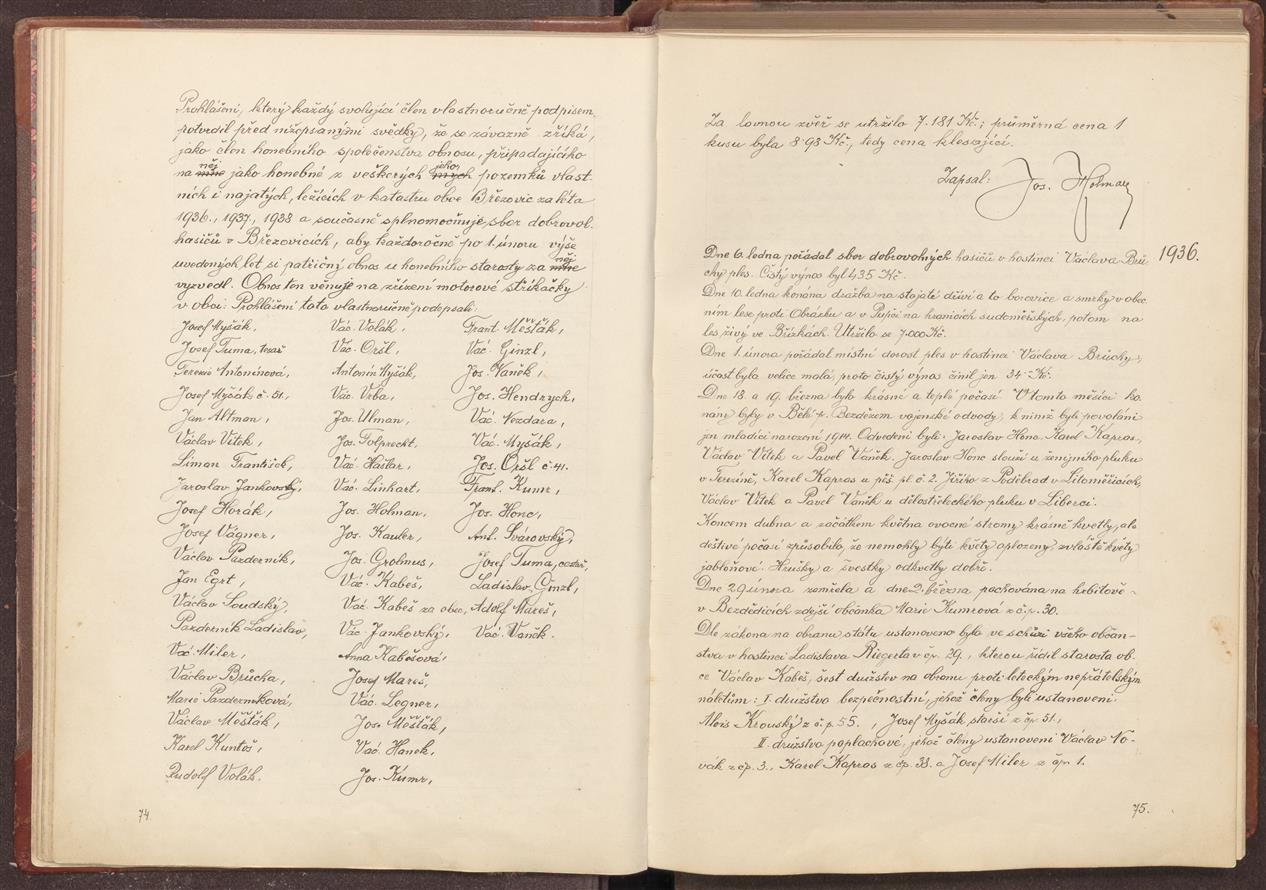 Prohlášení, který každý svolující člen vlastnoručně podpisem
potvrdil před nížepsanými svědky, že se závazně zříká,
jako člen honebního společenstva obnosu, připadajícího
něj jeho
na mne jako honebné z veškerých mých pozemků vlast-
ních i najatých, ležících v katastru obce Březovic za léta
1936., 1937., 1938 a současně splnomocňuje sbor dobrovol.
hasičů v Březovicích, aby každoročně po 1. únoru výše
něj
uvedených let si patřičný obnos u honebního starosty za mne
vyzvedl. Obnos ten věnuje na zřízení motorové stříkačky
v obci. Prohlášení toto vlastnoručně podepsali:
Josef Myšák, Vác. Volák, Frant. Měšťák,
Josef Tuma, tesař Vác. Oršl, Vác. Ginzl,
Ferenč Antonínová, Antonín Myšák, Jos. Vaněk,
Josef Myšák č. 51, Vác. Vrba, Jos. Hendrych,
Jan Altman, Jos. Ulman, Vác. Nezdara,
Václav Vítek, Jos. Folprecht, Vác. Myšák,
Liman František, Vác. Haštar, Jos. Oršl č. 41.
Jaroslav Jankovský, Vác. Linhart, Frant. Kumr,
Josef Horák, Jos. Holman, Jos. Honc,
Josef Vágner, Jos. Kauler, Ant. Svárovský,
Václav Pazderník, Jos. Grolmus, Josef Tuma, cestář,
Jan Egrt, Vác. Kabeš, Ladislav Ginzl,
Václav Soudský, Vác. Kabeš za obec, Adolf Mareš,
Pazderník Ladislav, Vác. Jankovský, Vác. Vaněk.
Vác. Miler, Anna Kabešová,
Václav Brůcha, Josef Mareš,
Marie Pazderníková, Vác. Legner,
Václav Měšťák, Jos. Měšťák,
Karel Kuntoš, Vác. Hanek,
Rudolf Volák. Jos. Kumr,
74.
Za lovnou zvěř se utržilo 7.181 Kč.; průměrná cena 1
kusu byla 8·98 Kč., tedy cena klesající.
Zapsal: Jos. Holman
1936.
Dne 6. ledna pořádal sbor dobrovolných hasičů v hostinci Václava Brů-
chy ples. Čistý výnos byl 435 Kč.
Dne 10. ledna konána dražba na stojaté dříví a to borovice a smrky v obec-
ním lese proti Obrázku a v Pupři na hranicích sudoměřských, potom na
les živý ve Břízkách. Utržilo se 7·000 Kč.
Dne 1. února pořádal místní dorost ples v hostinci Václava Brůchy;
účast byla velice malá, proto čistý výnos činil jen 34 Kč.
Dne 18. a 19. března bylo krásné a teplé počasí. V tomto měsíci ko-
nány byly v Bělé p. Bezdězem vojenské odvody, k nimž byli povoláni
jen mladíci narození 1914. Odvedeni byli: Jaroslav Honc, Karel Kapras,
Václav Vítek a Pavel Vaněk. Jaroslav Honc slouží u ženijního pluku
v Terezíně, Karel Kapras u pěš. pl. č. 2. Jiřího z Poděbrad v Litoměřicích,
Václav Vítek a Pavel Vaněk u dělostřeleckého pluku v Liberci.
Koncem dubna a začátkem května ovocné stromy krásně kvetly, ale
deštivé počasí způsobilo, že nemohly býti květy oplozeny, zvláště květy
jabloňové. Hrušky a švestky odkvetly dobře.
Dne 29. února zemřela a dne 2. března pochována na hřbitově
v Bezdědicích zdejší občanka Marie Kumrová z č. p. 30.
Dle zákona na obranu státu ustanoveno bylo ve schůzi všeho občan-
stva v hostinci Ladislava Riegerta v čp. 29., kterou řídil starosta ob-
ce Václav Kabeš, šest družstev na obranu proti leteckým nepřátelským
náletům: I. družstvo bezpečnostní, jehož členy byli ustanoveni
Alois Krouský z č. p. 55., Josef Myšák starší z čp. 51.,
II. družstvo poplachové, jehož členy ustanoveni Václav No-
vák z čp. 3., Karel Kapras z čp. 38. a Josef Miler z čp. 1.
75.